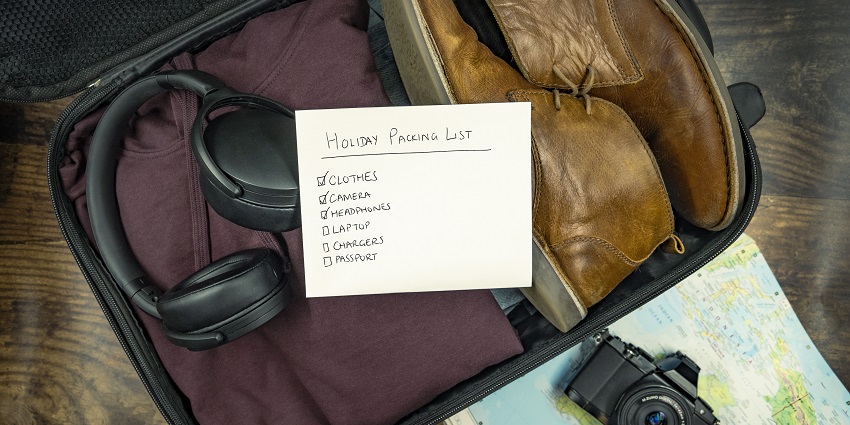 HOLIDAY PACKING LIST
CLOTHES
CAMERA
HEADPHONES
LAPTOP
CHARGERS
PASSPORT